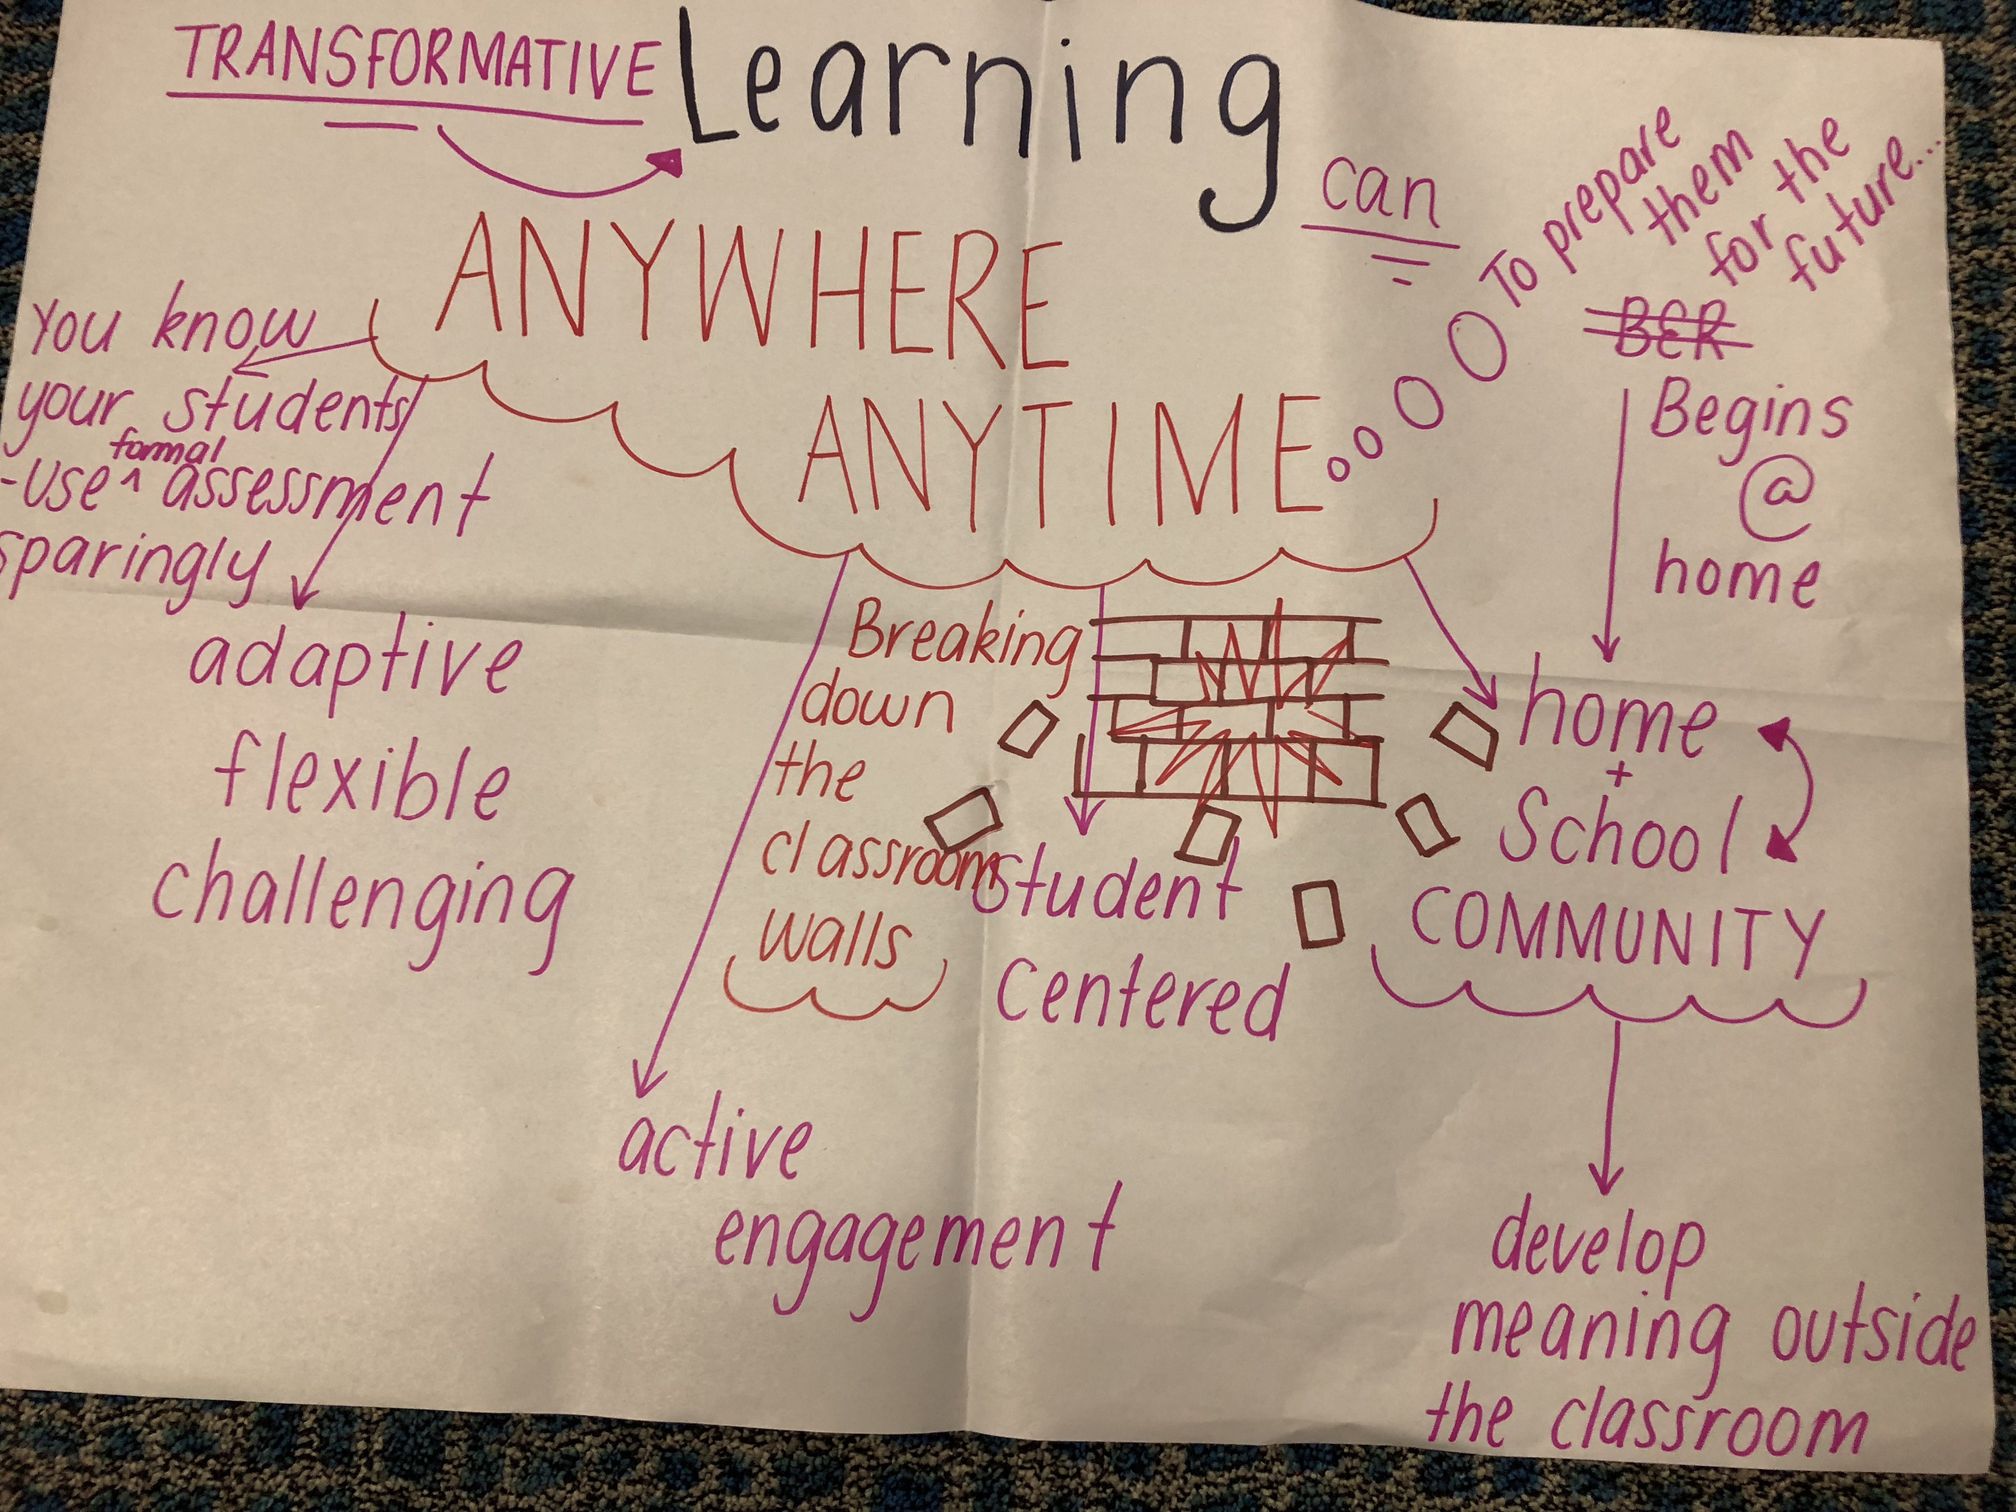 TRANSFORMATIVE Learning
can
To prepare
them
for the
future....
ANYWHERE
ANYTIME
You know
your students
-use ^ formal assessment
sparingly
adaptive
flexible
challenging
Breaking
down
the
classroom
walls
active
engagement
Student
Centered
BER
Begins
@
home
home
+
School
COMMUNITY
develop
meaning outside
the classroom